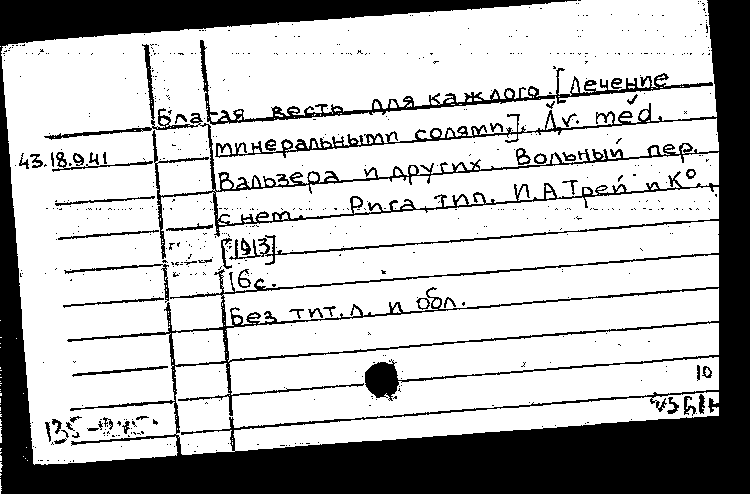 Благая весть для каждого. [Лечение
минеральными солями,]. Dr. med.
43.18.9.41
Вальзера и других. Вольный пер.
с нем. Рига, тип. И.А.Трей и К°.,
[1913].
16с.
Без тит.л. и обл.
10